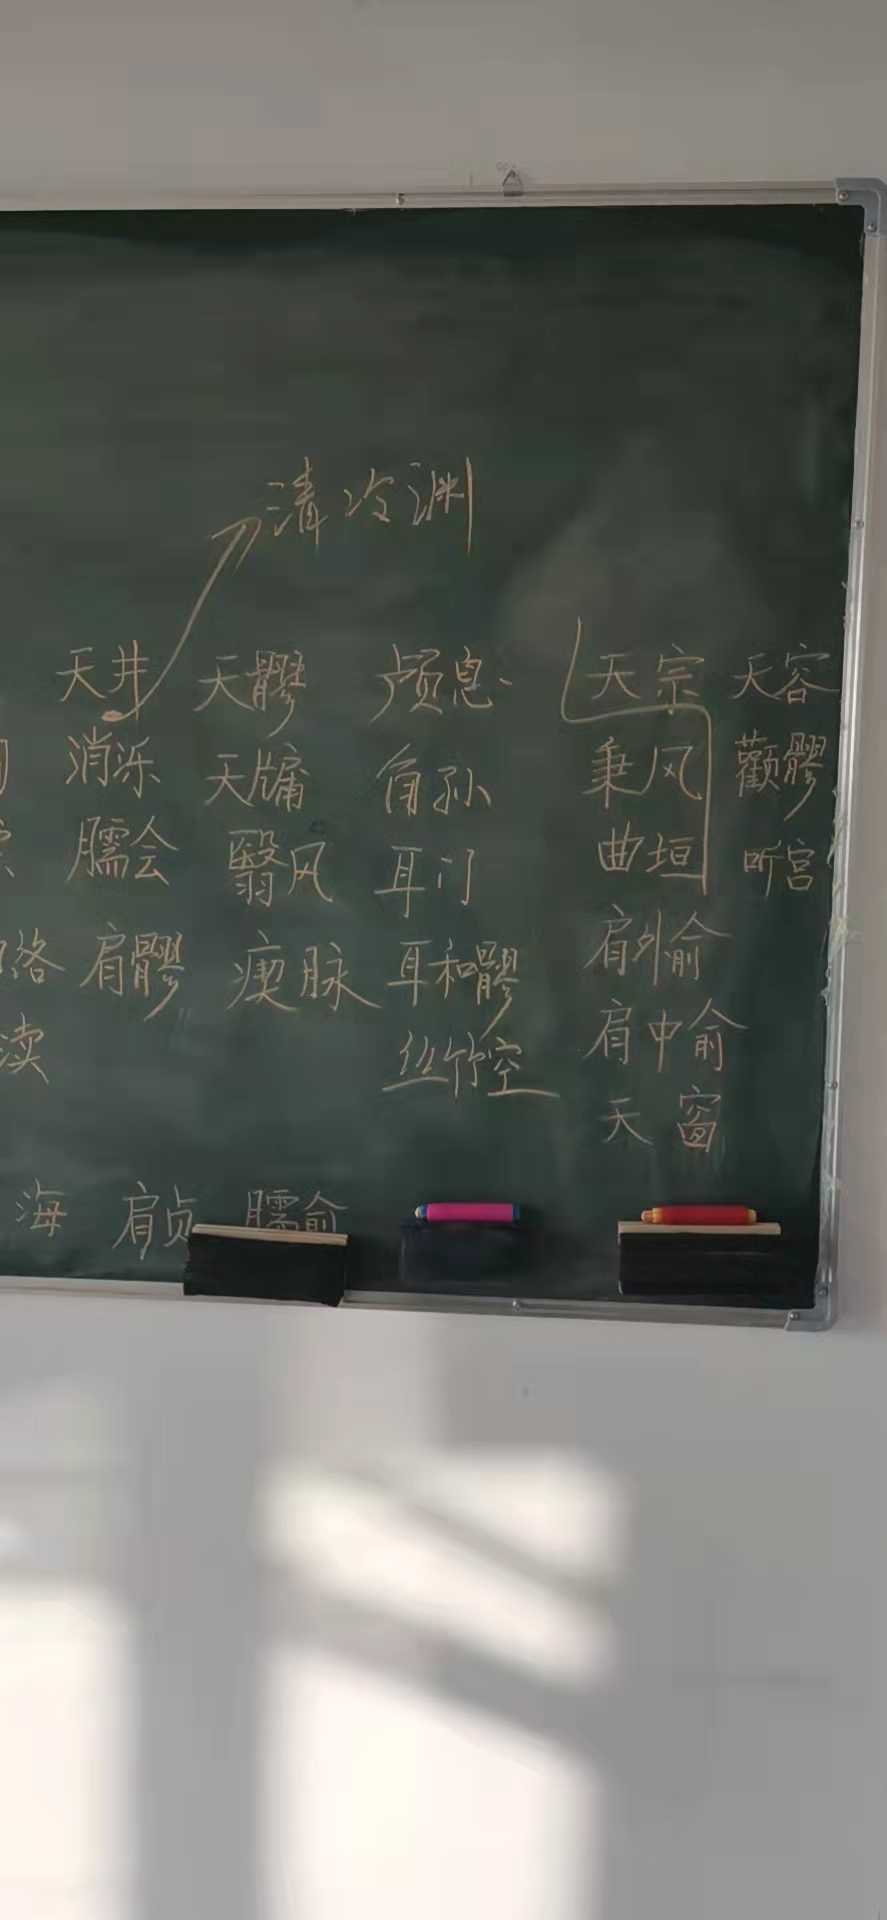 清冷渊
天井 天髎 颅息 天宗 天容
消泺 天牖 角孙 秉风 颧髎
臑会 翳风 耳门 曲垣 听宫
络 肩髎 瘈脉 耳和髎 肩外俞
渎 丝竹空 肩中俞
天窗
海 肩贞 臑俞